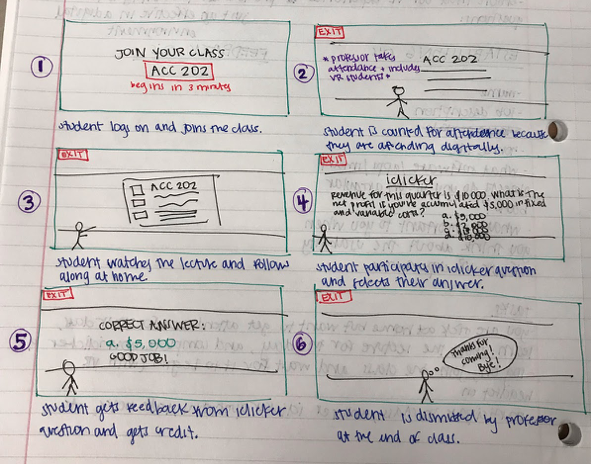 1
JOIN YOUR CLASS
ACC 202
begins in 3 minutes
student logs on and joins the class.
2
EXIT
*professor takes
attendance + includes
VR students*
ACC 202
student is counted for attendance because
they are attending digitally.
3
EXIT
ACC 202
student watches the lecture and follows
along at home.
4
EXIT
iclicker
Revenue for this quarter is $10,000 what is the
net profit if you've accumulated $5,000 in fixed
and variable costs?
a. $5,000
d. $10,000
student participates in iclicker question
and selects their answer.
5
EXIT
CORRECT ANSWER:
a. $5,000
GOOD JOB!
student gets feedback from iclicker
question and gets credit.
6
EXIT
Thanks for
coming!
Bye!
student is dismissed by professor
at the end of class.